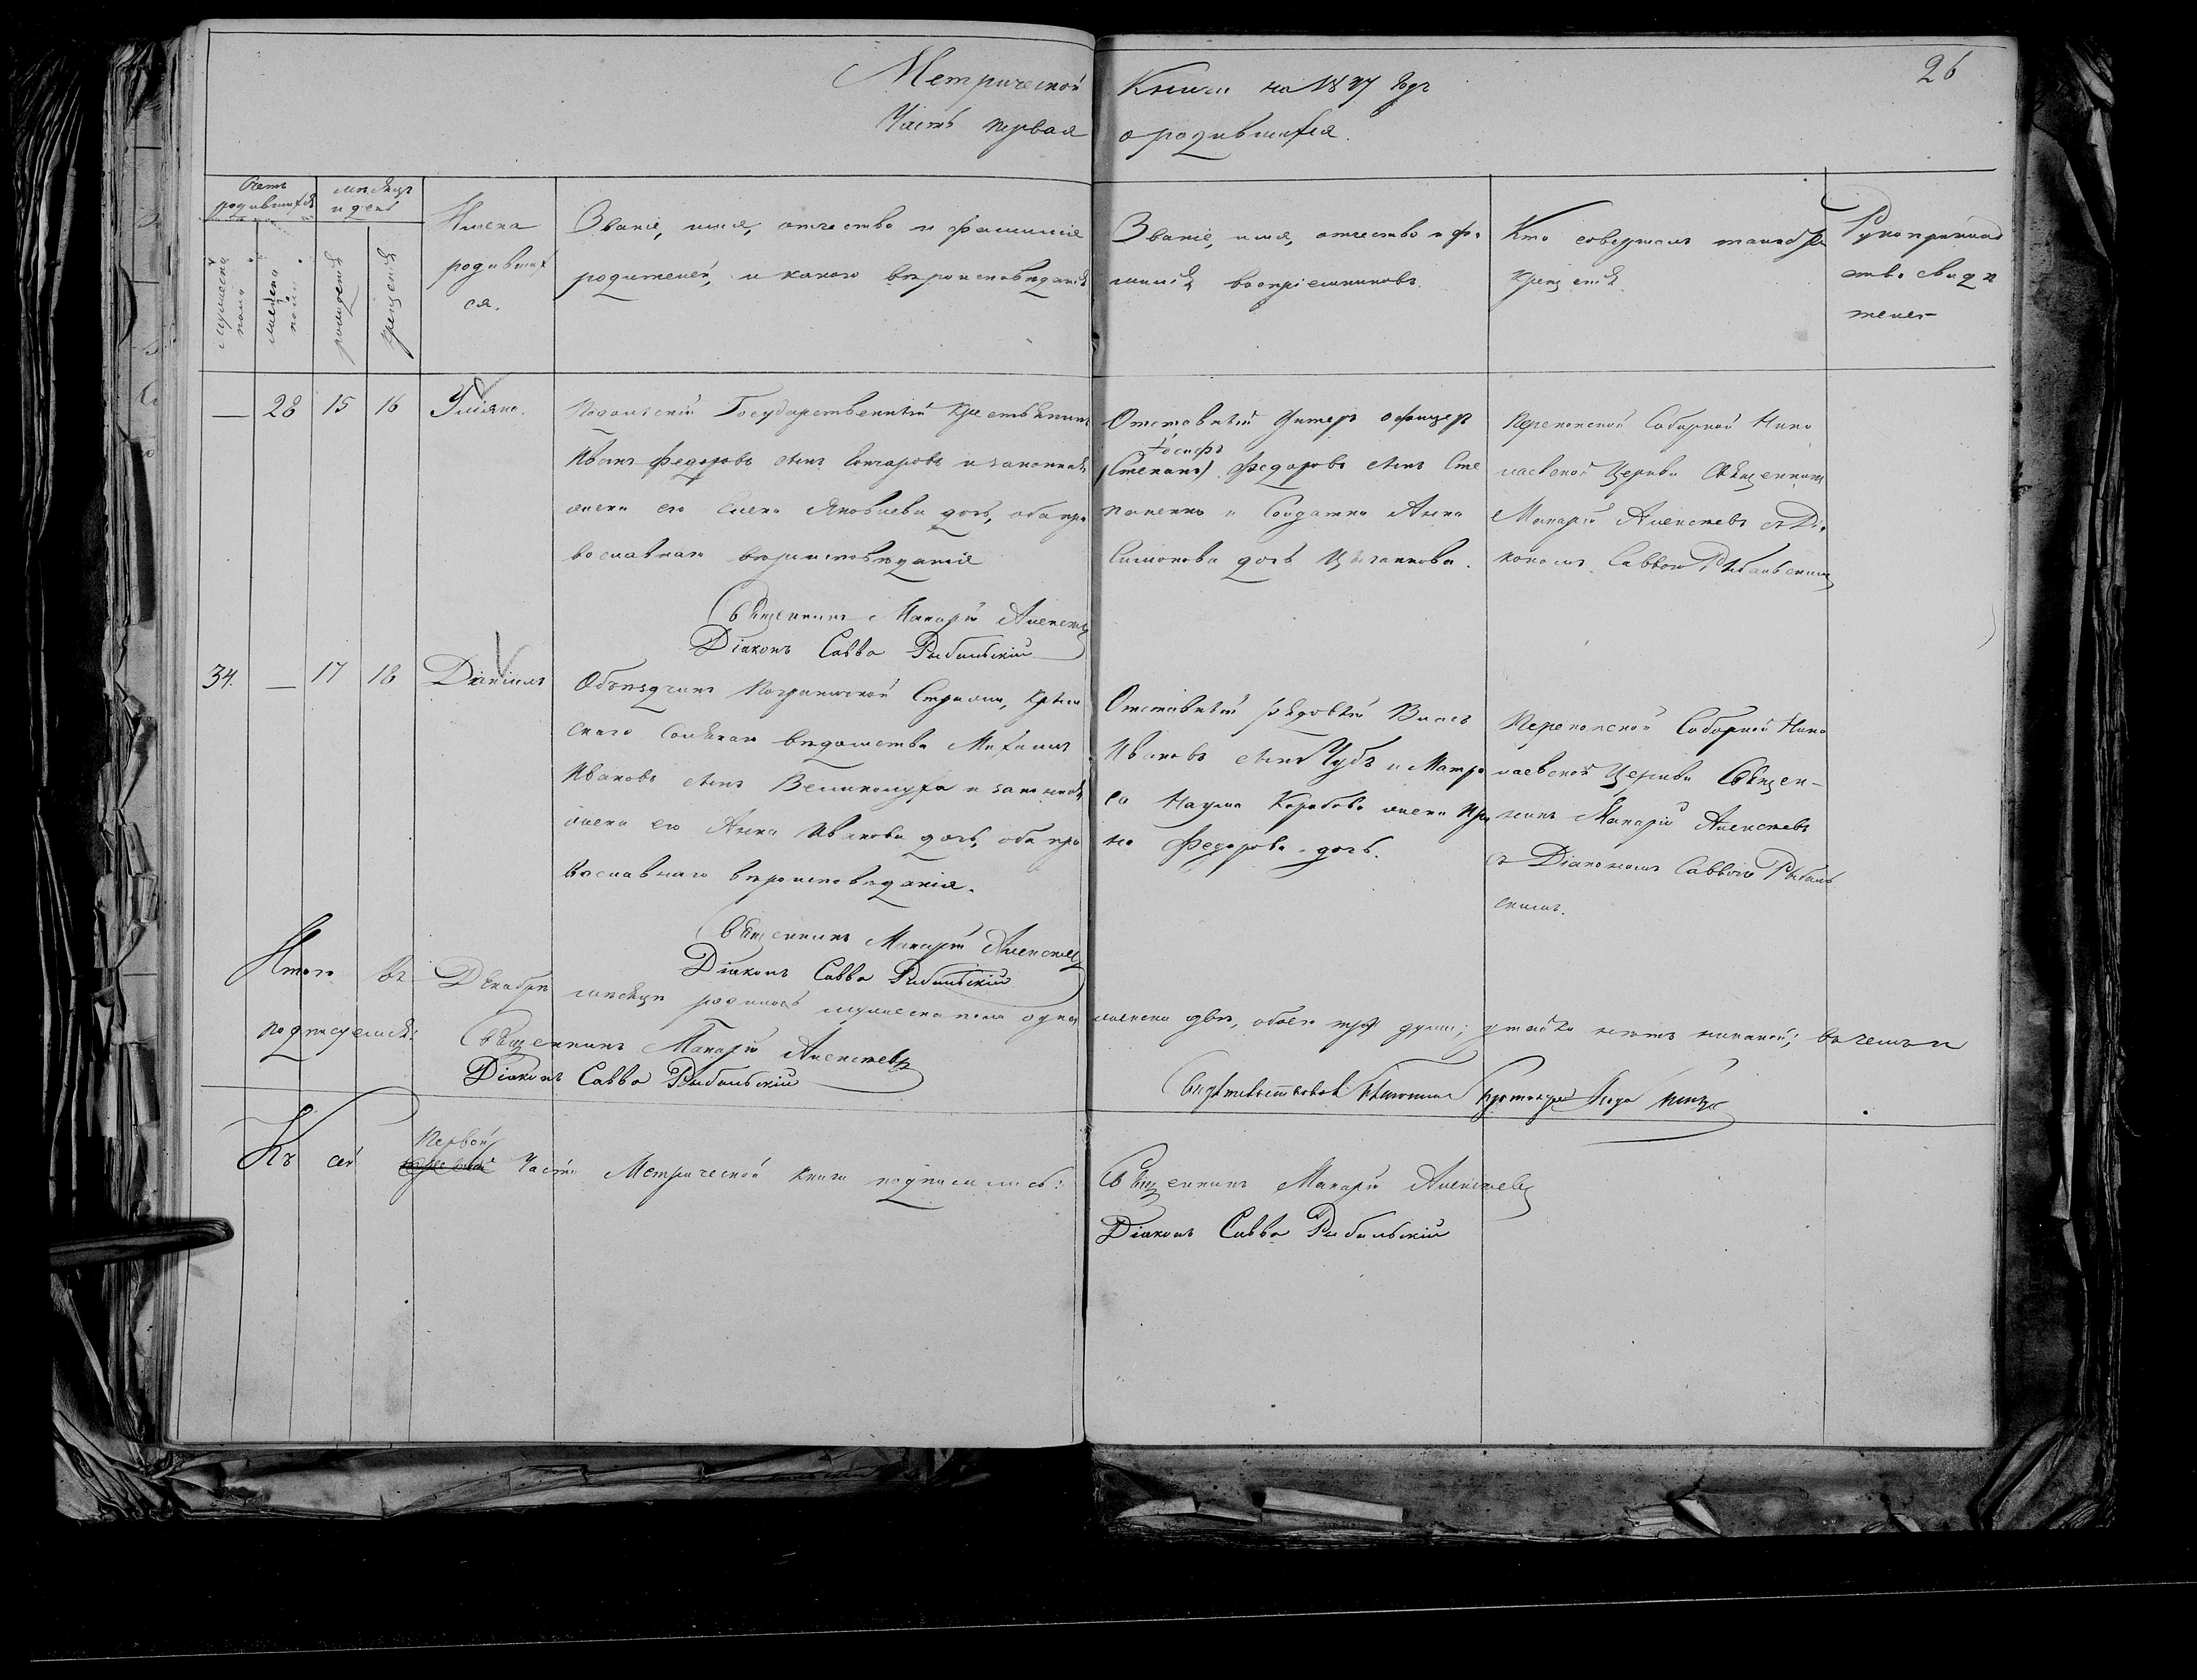 26
Метрической Книги на 1847 годъ
Часть первая о родившихся.
Счетъ родившихся
мѣсяцъ и день
мужеска пола
женска пола
рожденія
крещенія
Имена
родивших
ся.
Званіе, имя, отчество и фамилія
родителей, и какого вѣроисповѣданія
Званіе, имя, отчество и фа
милія воспріемниковъ.
Кто совершалъ таинство
крещенія
Рукоприклад
ство свидѣ
телей
— 28 15 16 Уліяна.
Государственный крестьянинъ
Иванъ Федоровъ сынъ Гончаровъ и законная
жена его Елена Яковлева дочь, оба пра
вославнаго вѣроисповѣданія
Священникъ Макарій Алексѣевъ
Діаконъ Савва Рыбальскій
Отставный Унтеръ офицеръ
Іосифъ
(Степанъ) Федоровъ сынъ Сте
паненко и Солдатка Анна
Симонова дочь Цыганкова.
Перекопской Соборной Нико
лаевской Церкви Священникъ
Макарій Алексѣевъ съ Діа
кономъ Саввою Рыбальскимъ
34. — 17 18 Даніилъ
Объѣздчикъ Пограничной Стражи, Крым
скаго Солянаго вѣдомства Михаилъ
Ивановъ сынъ Великопуха и законная
жена его Анна Иванова дочь, оба пра
вославнаго вѣроисповѣданія.
Священникъ Макарій Алексѣевъ
Діаконъ Савва Рыбальскій
Отставный рядовый Власъ
Ивановъ сынъ Чубъ и Матро
са Наума Коробова жена Ири
на Федорова дочь.
Перекопской Соборной Нико
лаевской Церкви Священ-
никъ Макарій Алексѣевъ
съ Діакономъ Саввою Рыбаль
скимъ.
Итого въ Декабрѣ мѣсяцѣ родилось мужеска пола одна женска двѣ, обоего три души; утайки нѣтъ никакой; въ чемъ и
подписуемся: Священникъ Макарій Алексѣевъ
Діаконъ Савва Рыбальскій
Свидѣтельствовалъ
Первой
Къ сей Части Метрической книги подписались: Священникъ Макарій Алексѣевъ
Діаконъ Савва Рыбальскій